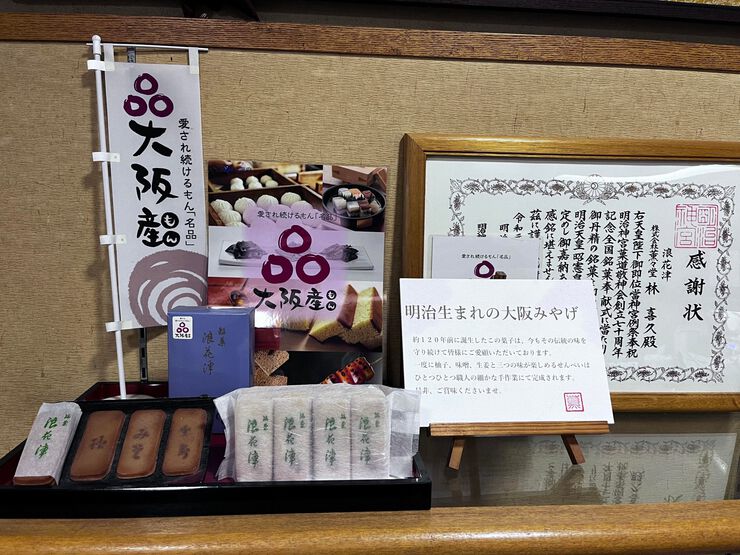 大阪産
もん
愛され続けるもん「名品」
愛され続けるもん「名品」
大阪産
もん
銘菓
浪花津
銘菓
浪花津
柚
みそ
生姜
銘菓
浪花津
銘菓
浪花津
銘菓
浪花津
銘菓
浪花津
愛され続けるもん「名品」
明治生まれの大阪みやげ
約120年前に誕生したこの菓子は、今もその伝統の味を
守り続けて皆様にご愛顧いただいております。
一度に柚子、味噌、生姜と三つの味が楽しめるせんべいは
ひとつひとつ職人の細かな手作業にて完成されます。
是非、ご賞味くださいませ。
感謝状
浪花津
林喜久殿
右天皇陛下御即位當神宮例祭奉祝
明治神宮菓道敬神会創立七十周年
記念全国銘菓奉献式に當り
御丹精の銘菓を
明治天皇 昭憲皇
定のし御嘉納を
感銘に堪えません
茲に謹
令和元
明治
明治神宮